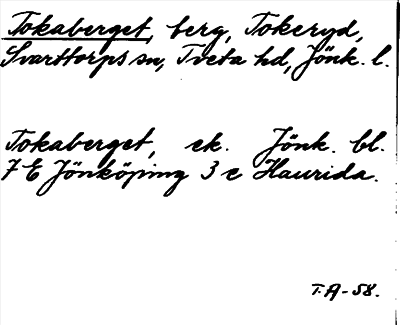 Tokaberget, berg, Tokeryd,
Svarttorps sn, Tveta hd, Jönk. l.
Tokaberget, ek. Jönk. bl.
7 E Jönköping 3 c Haurida.
T.A-58.